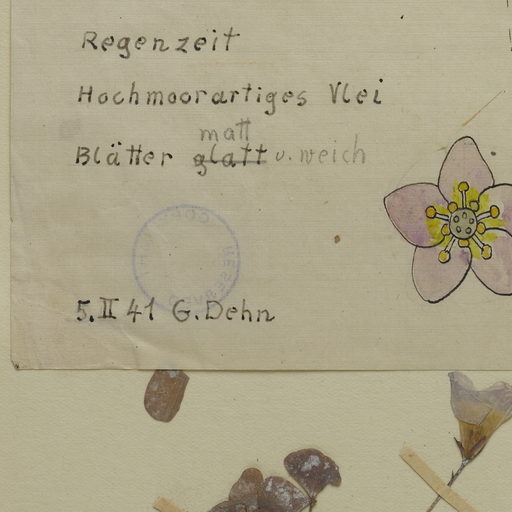 Regenzeit
Hochmoorartiges Vlei
matt
Blätter glatt u. weich
5.II 41 G. Dehn